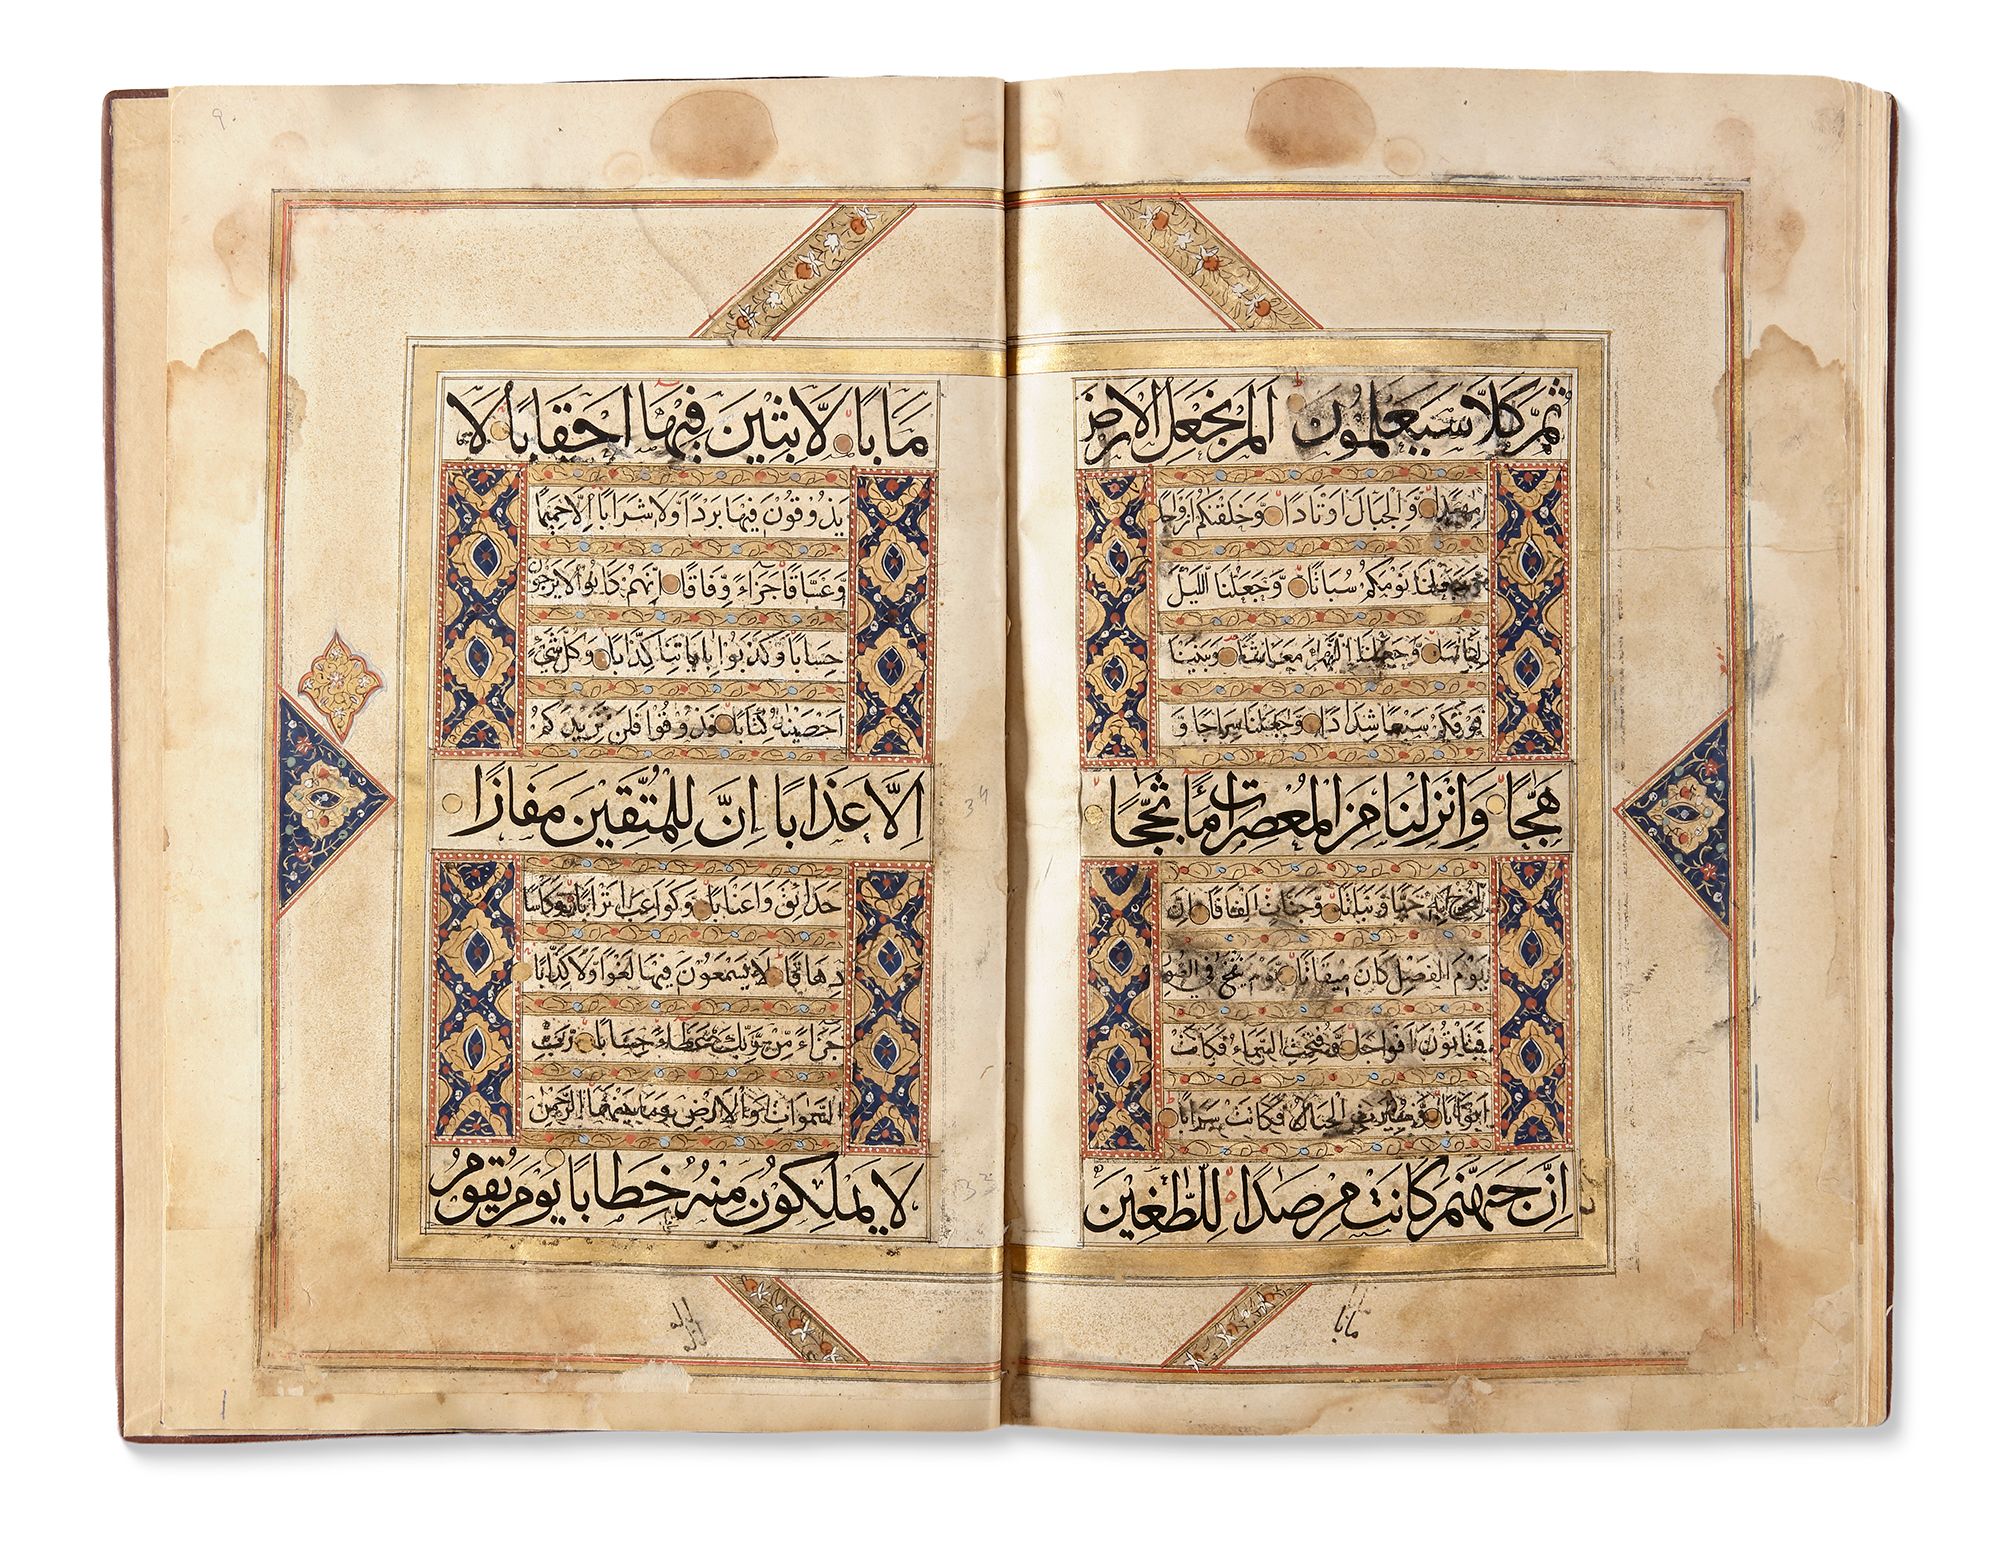 ثُمَّ كَلَّا سَيَعْلَمُونَ اَلَمْ نَجْعَلِ الْاَرْضَ
مِهٰدًا وَالْجِبَالَ اَوْتَادًا وَّخَلَقْنٰكُمْ اَزْوَاجًا
وَّجَعَلْنَا نَوْمَكُمْ سُبَاتًا وَّجَعَلْنَا اللَّيْلَ
لِبَاسًا وَّجَعَلْنَا النَّهَارَ مَعَاشًا وَّبَنَيْنَا
فَوْقَكُمْ سَبْعًا شِدَادًا وَّجَعَلْنَا سِرَاجًا وَّ
هَّاجًا وَّاَنْزَلْنَا مِنَ الْمُعْصِرٰتِ مَآءً ثَجَّاجًا
لِّنُخْرِجَ بِهٖ حَبًّا وَّنَبَاتًا وَّجَنّٰتٍ اَلْفَافًا اِنَّ
يَوْمَ الْفَصْلِ كَانَ مِيقَاتًا يَّوْمَ يُنْفَخُ فِي الصُّورِ
فَتَاْتُوْنَ اَفْوَاجًا وَّفُتِحَتِ السَّمَآءُ فَكَانَتْ
اَبْوَابًا وَّسُيِّرَتِ الْجِبَالُ فَكَانَتْ سَرَابًا
اِنَّ جَهَنَّمَ كَانَتْ مِرْصَادًا لِّلطّٰغِيْنَ
مَاٰبًا
مَاٰبًا لّٰبِثِيْنَ فِيْهَا اَحْقَابًا لَا
يَذُوقُوْنَ فِيْهَا بَرْدًا وَّلَا شَرَابًا اِلَّا حَمِيْمًا
وَّغَسَّاقًا جَزَآءً وِّفَاقًا اِنَّهُمْ كَانُوا لَا يَرْجُوْنَ
حِسَابًا وَّكَذَّبُوا بِاٰيَاتِنَا كِذَّابًا وَكُلَّ شَيْءٍ
اَحْصَيْنٰهُ كِتَابًا فَذُوقُوا فَلَنْ نَّزِيْدَكُمْ
اِلَّا عَذَابًا اِنَّ لِلْمُتَّقِيْنَ مَفَازًا
حَدَآئِقَ وَاَعْنَابًا وَّكَوَاعِبَ اَتْرَابًا وَّكَاْسًا
دِهَاقًا لَا يَسْمَعُوْنَ فِيْهَا لَغْوًا وَّلَا كِذَّابًا
جَزَآءً مِّنْ رَّبِّكَ عَطَآءً حِسَابًا رَبِّ
السَّمٰوَاتِ وَالْاَرْضِ وَمَا بَيْنَهُمَا الرَّحْمٰنِ
لَا يَمْلِكُوْنَ مِنْهُ خِطَابًا يَوْمَ يَقُوْمُ